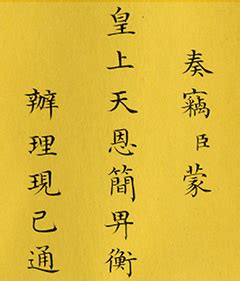 奏竊臣蒙
皇上天恩簡畀衡
辦理現已通